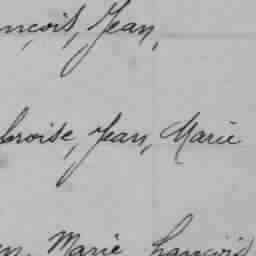 nçois, Jean,
broise, Jean, Marie
n, Marie, François